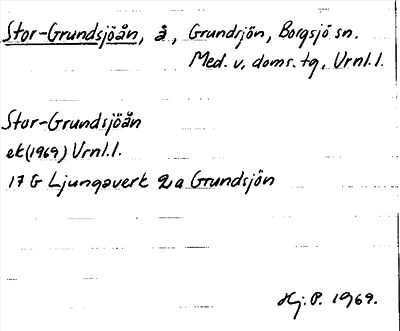 Stor-Grundsjöån, å, Grundsjön, Borgsjö sn.
Med. v. doms. tg, Vrnl. l.
Stor-Grundsjöån
ek (1969) Vrnl. l.
17 G Ljungaverk 2a Grundsjön
Hj. P. 1969.